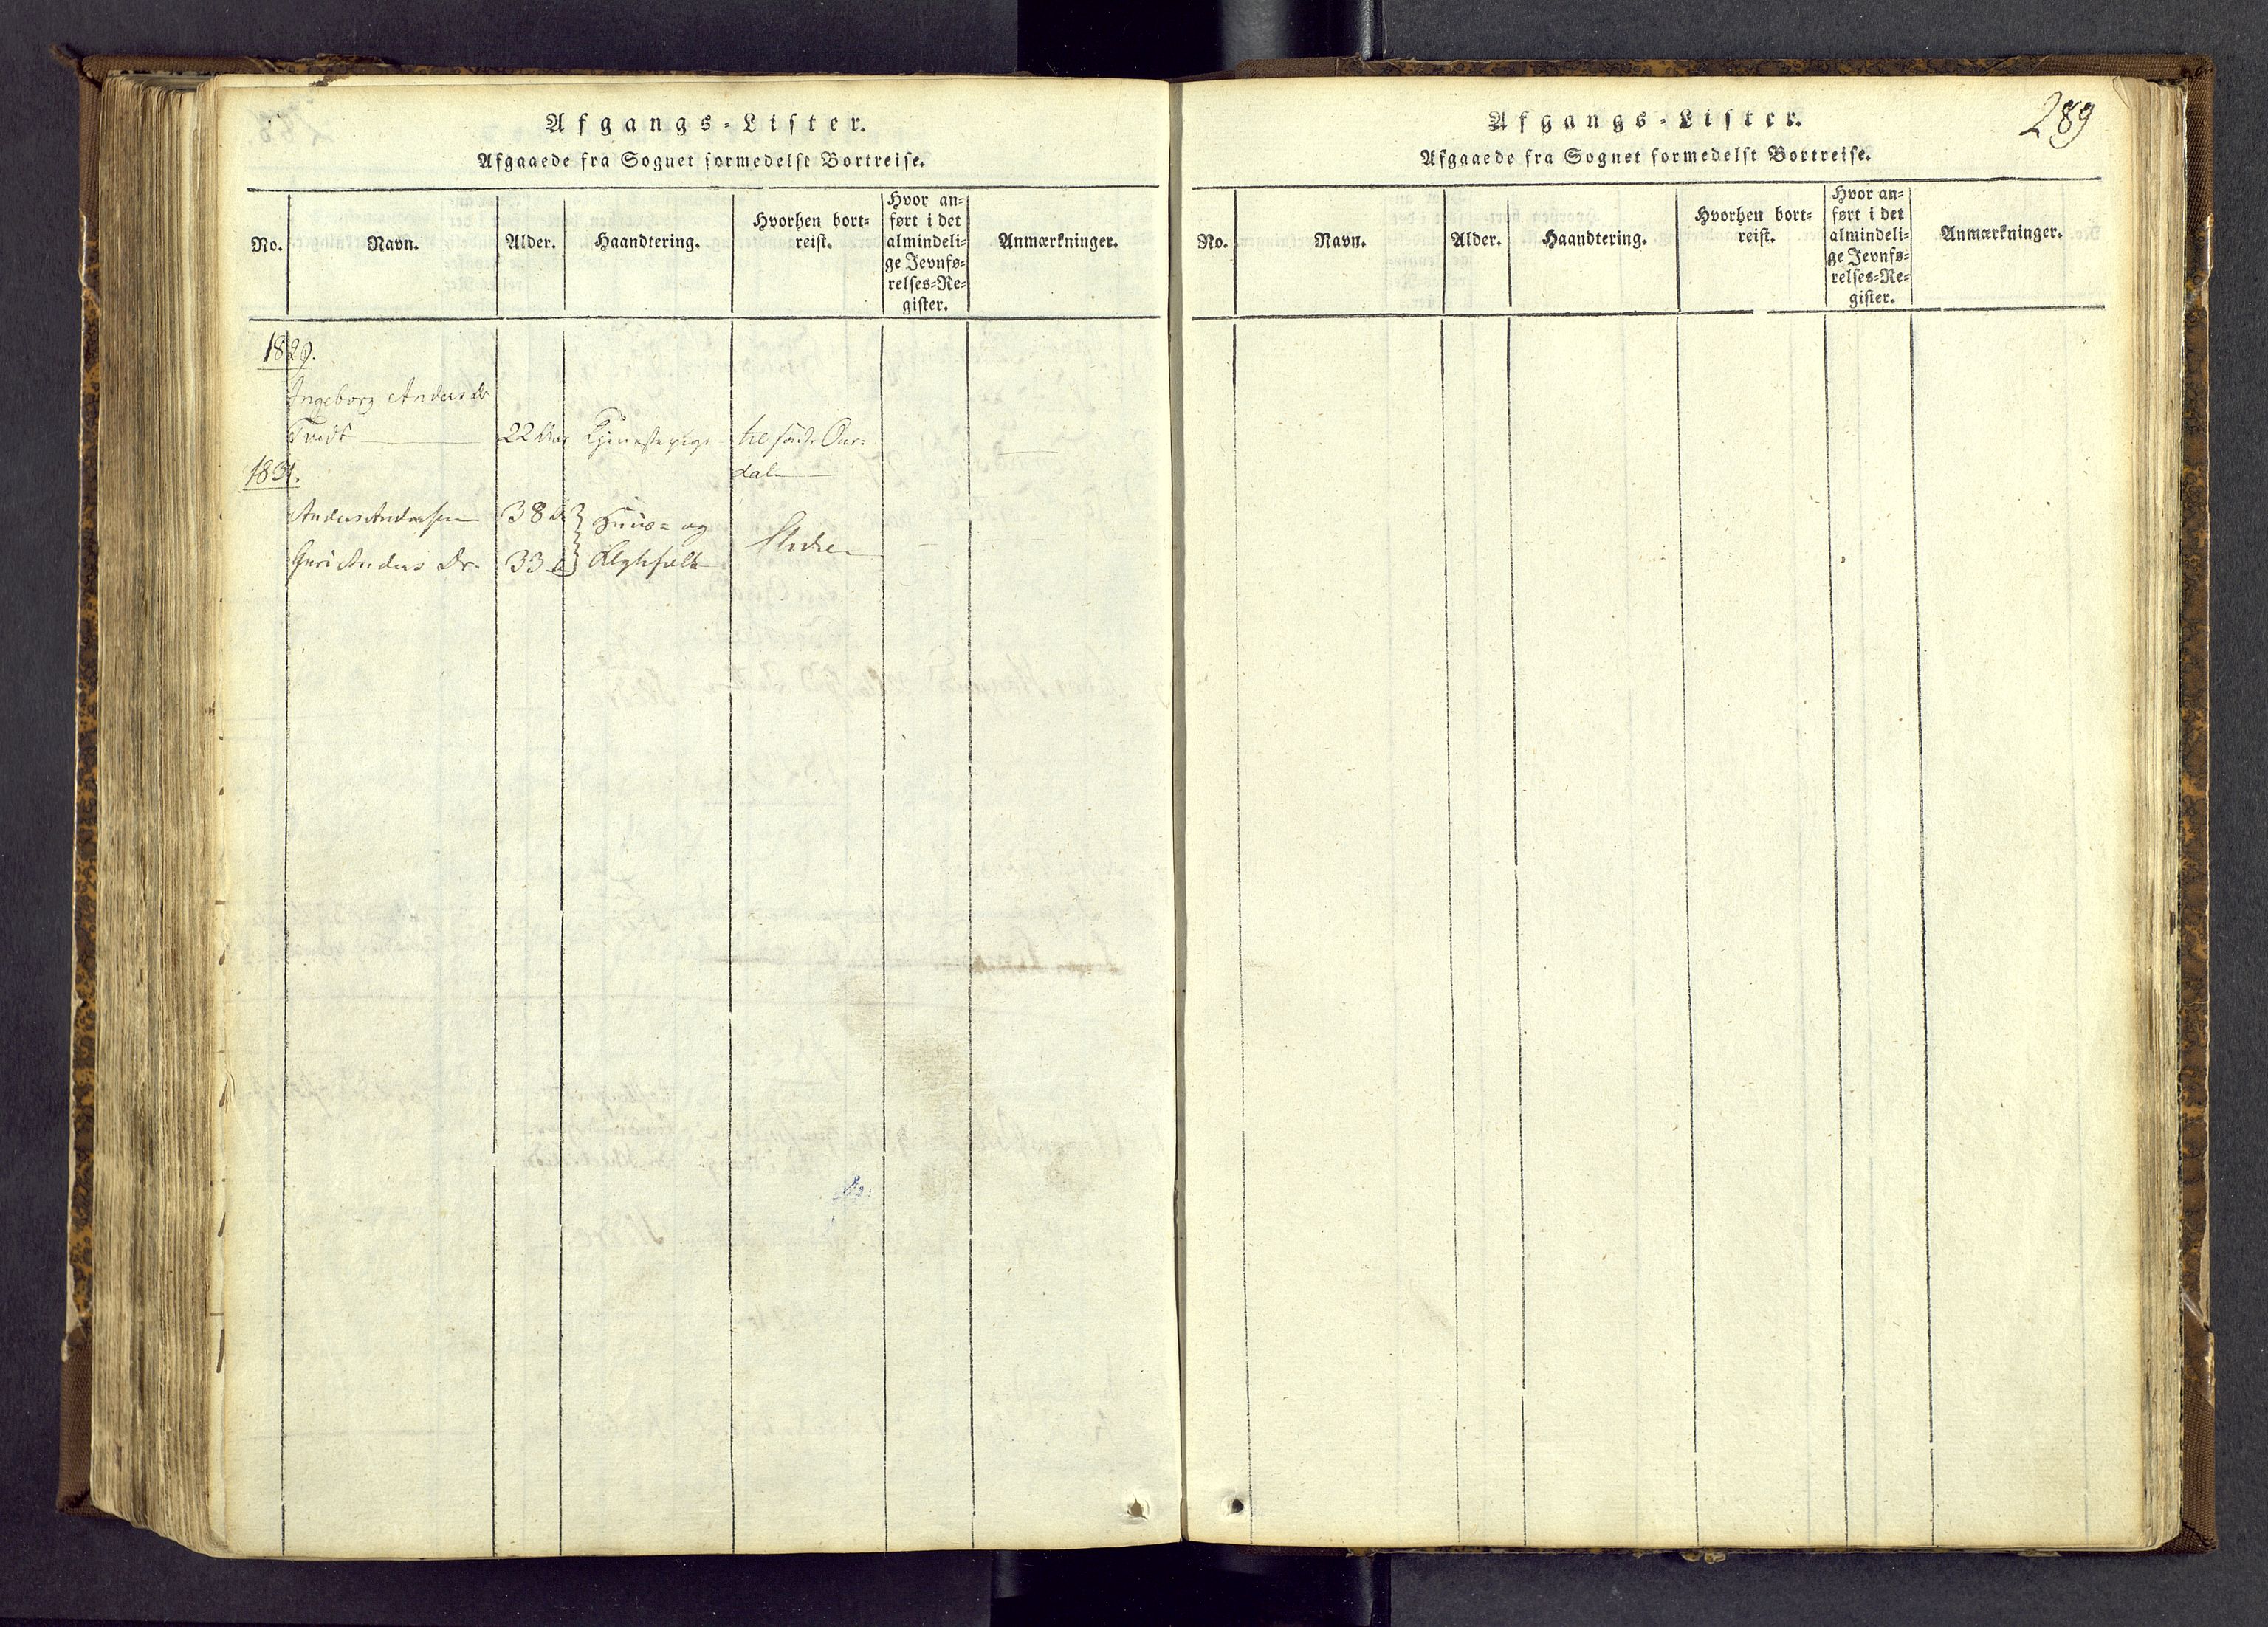 Afgangs-Lister.
Afgaaede fra Sognet formedelst Bortreise.
No.
Navn.
Alder.
Haandtering.
Hvorhen bort-
reist.
Hvor an-
ført i det
almindeli-
ge Jevnfø-
relses-Re-
gister.
Anmærkninger.
1829.
Ingeborg Anders Dr
Tvedt 22 Aar Tjenestepige til søndr Our-
dal
1831.
Anders Andersen 38 Huus- og
Guri Anders Dr. 33 Lægdsfolk Slidre
Afgangs-Lister.
289
Afgaaede fra Sognet formedelst Bortreise.
No.
Navn.
Alder.
Haandtering.
Hvorhen bort-
reist.
Hvor an-
ført i det
almindeli-
ge Jevnfø-
relses-Re-
gister.
Anmærkninger.